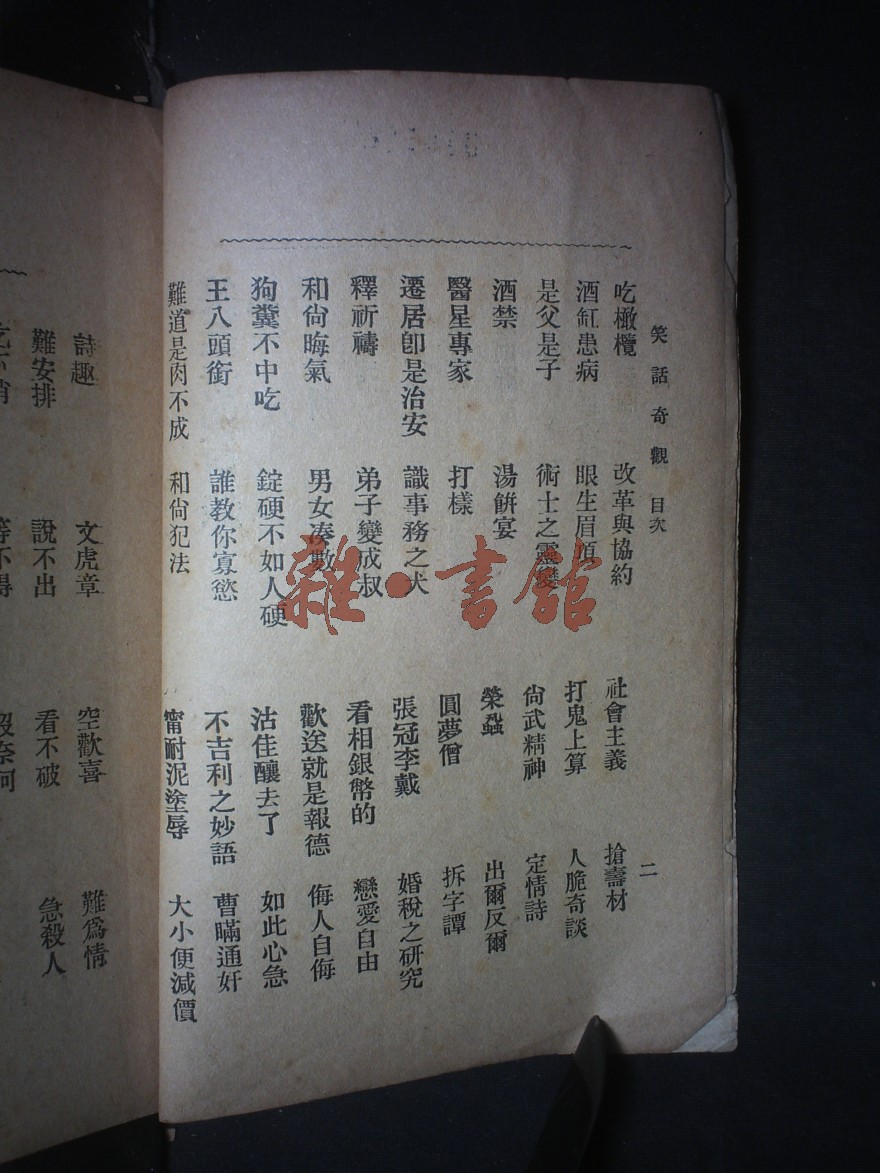 笑話奇觀 目次 二
吃橄欖 改革與協約 社會主義 搶壽材
酒缸患病 眼生眉頂 打鬼上算 人脆奇談
是父是子 術士之靈變 尙武精神 定情詩
酒禁 湯餅宴 榮蝨 出爾反爾
醫星專家 打樣 圓夢僧 拆字譚
遷居卽是治安 識事務之犬 張冠李戴 婚稅之研究
釋祈禱 弟子變成叔 看相銀幣的 戀愛自由
和尙晦氣 男女湊數 歡送就是報德 侮人自侮
狗糞不中吃 錠硬不如人硬 沽佳釀去了 如此心急
王八頭銜 誰教你寡慾 不吉利之妙語 曹瞞通奸
難道是肉不成 和尙犯法 甯耐泥塗辱 大小便減價
詩趣 文虎章 空歡喜 難爲情
難安排 說不出 看不破 急殺人
等不得
雜·書館